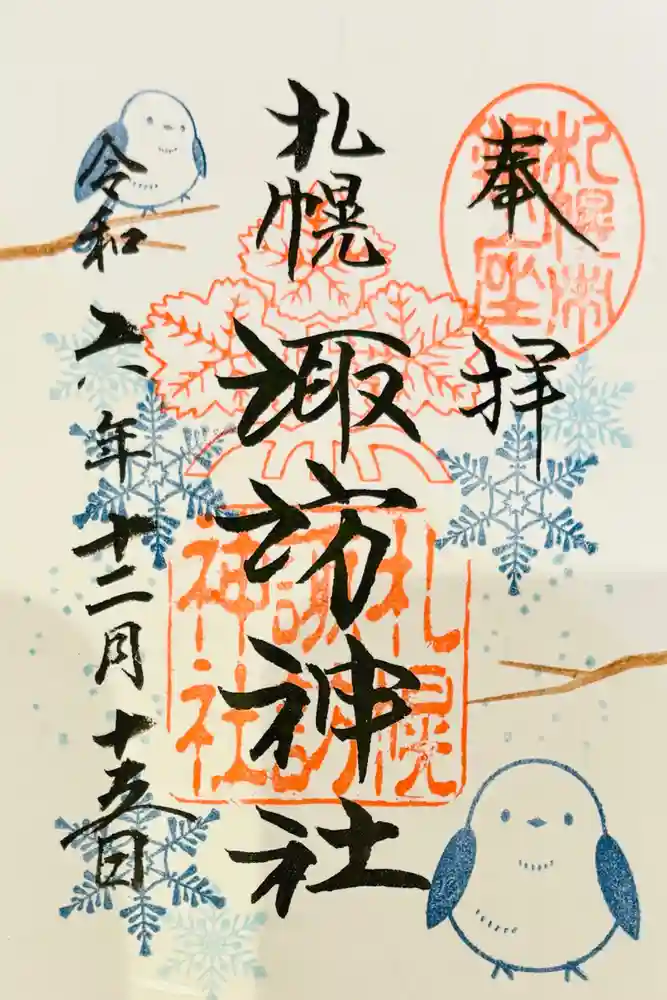 奉拝
札幌市
諏座
札幌
諏訪神社
札幌
諏訪
神社
令和六年十二月十五日